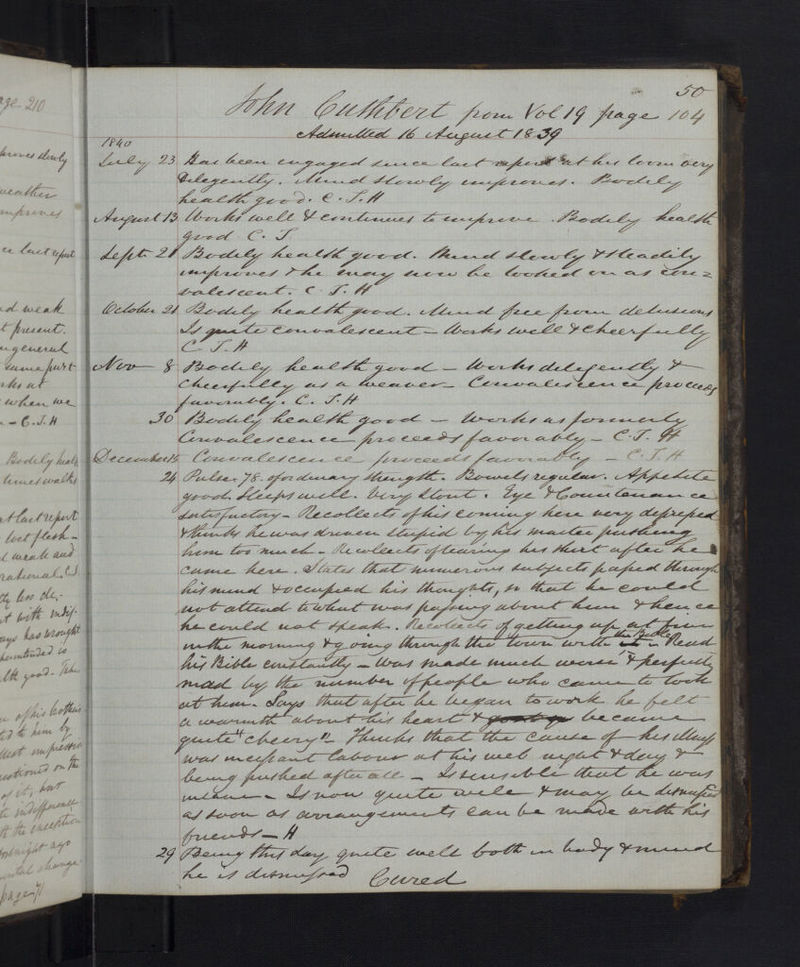 50
John Cuthbert from Vol 19 page 104
Admitted 16 August 1839
1840
July 23 Has been engaged since last report at his loom very
diligently. Mind slowly improves. Bodily
health good. C.J.H
August 13 Works well & continues to improve. Bodily health
good C.J
Sept. 21 Bodily health good. Mind slowly & steadily
improves & he may now be looked on as con=
valescent. C.J.H
October 21 Bodily health good. Mind free from delusions
Is quite convalescent - Works well & cheerfully
C.J.H
Nov 8 Bodily health good - Works diligently &
cheerfully as a weaver - Convalescence proceeds
favorably. C.J.H
30 Bodily health good - Works as formerly
Convalescence proceeds favorably - C.J.H
December 15 Convalescence proceeds favorably - C.J.H
24 Pulse 78. of ordinary strength. Bowels regular. Appetite
good. Sleeps well. Very stout. Eye & Countenance
satisfactory - Recollects of his coming here very depressed
& thinks he was driven stupid by his master pushing
him too much - Recollects of tearing his shirt after he
came here. States that numerous subjects passed through
his mind & occupied his thoughts, so that he could
not attend to what was passing about him & hence
he could not speak. Recollects of getting up at four
in the morning & going through the town with the Bible - Read
his Bible constantly - Was made much worse & perfectly
mad by the number of people who came to look
at him. Says that after he began to work he felt
a warmth about his heart & became
quite "cheery" - Thinks that the cause of his illness
was incessant labour at his web night & day &
being pushed after all - Is sensible that he was
insane - Is now quite well & may be dismissed
as soon as arrangements can be made with his
friends - H
29 Being this day quite well both in body & mind
he is dismissed Cured
page 210
improves slowly
weather
improves
last report
and weak
present.
in general
same part
when we
C.J.H
Bodily health
times walks
at last report
lost flesh -
weak and
rational. C.J
with indif-
has wrought
good - The
of his brothers
to him by
impression
on the
of it, but
indifference
the exception
fortnight ago
mental change
page 71